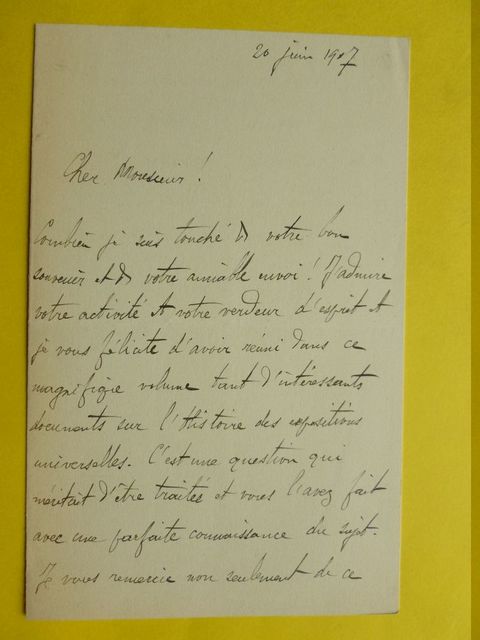 20 juin 1907
Cher Monsieur !
Combien je suis touché de votre bon
souvenir et de votre aimable envoi ! J'admire
votre activité et votre verdeur d'esprit et
je vous félicite d'avoir réuni dans ce
magnifique volume tant d'intéressants
documents sur l'Histoire des expositions
universelles. C'est une question qui
méritait d'être traitée et vous l'avez fait
avec une parfaite connaissance du sujet.
Je vous remercie non seulement de ce